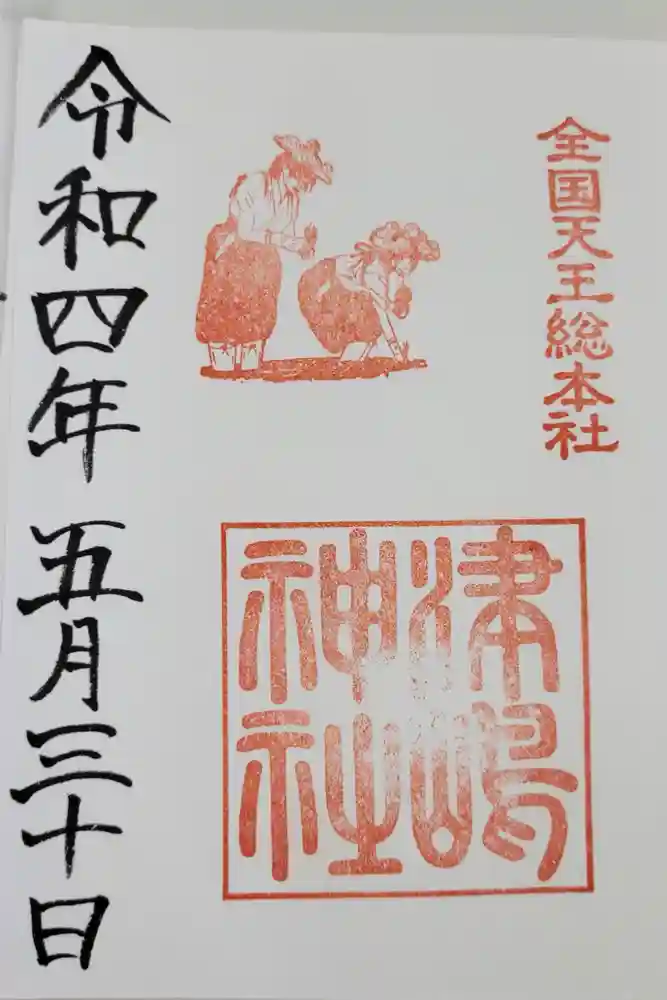 全国天王総本社
津嶋
神社
令和四年 五月三十日